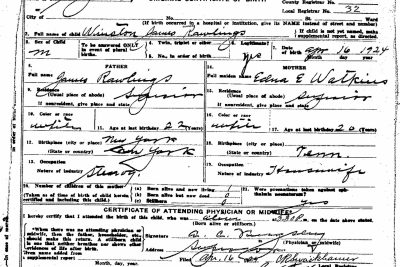 County Registrar No.
Local Registrar No. 32
No. St. Ward
(If birth occurred in a hospital or institution, give its NAME instead of street and number)
2. Full name of child Winston James Rawlings
If child is not yet named, make supplemental report, as directed.
3. Sex of Child M
To be answered ONLY in event of plural births.
4. Twin, triplet or other
5. No., in order of birth
6. Legitimate? Yes
7. Date of birth Apr 16 1924
Month day year
8. FATHER
Full name James Rawlings
9. Residence (Usual place of abode) Superior
If nonresident, give place and state
10. Color or race white
11. Age at last birthday 22 (Years)
12. Birthplace (city or place) New York
(State or country) New York
13. Occupation
Nature of industry
14. MOTHER
Full maiden name Edna E Watkins
15. Residence (Usual place of abode) Superior
If nonresident, give place and state
16. Color or race white
17. Age at last birthday 20 (Years)
18. Birthplace (city or place)
(State or country) Tenn.
19. Occupation
Nature of industry Housewife
20. Number of children of this mother
(Taken as of time of birth of child herein certified and including this child.)
(a) Born alive and now living 1
(b) Born alive but now dead 0
(c) Stillborn 0
21. Were precautions taken against ophthalmia neonatorum? yes
CERTIFICATE OF ATTENDING PHYSICIAN OR MIDWIFE
I hereby certify that I attended the birth of this child, who was alive P.M. on the date above stated.
(Born alive or stillborn.)
When there was no attending physician or midwife, then the father, householder, etc. should make this return. A stillborn child is one that neither breathes nor shows other evidence of life after birth.
Signature
(Physician or midwife)
Address Superior
Given name added from a supplemental report
Month, day, year.
Filed Apr. 16